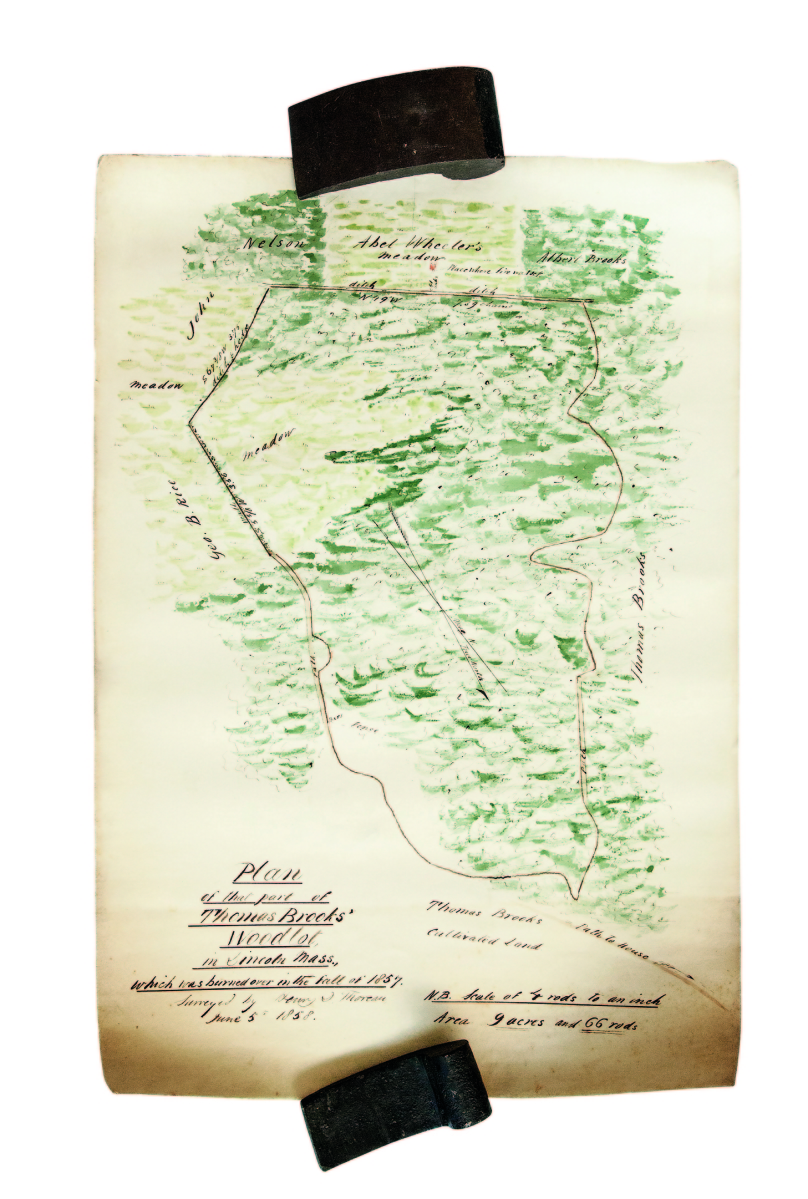 Nelson
Abel Wheeler's
meadow
Albert Brooks
ditch
ditch
John
meadow
meadow
Geo. B. Rice
Thomas Brooks
Fence
Path
Plan
of that part of
Thomas Brooks'
Woodlot,
in Lincoln Mass.,
which was burned over in the fall of 1857.
Surveyed by Henry D Thoreau
June 5 1858.
Thomas Brooks
Cultivated Land
Path to house
N.B. Scale of 4 rods to an inch
Area 9 acres and 66 rods